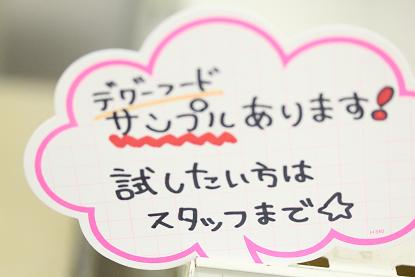 デグーフード
サンプルあります!
試したい方は
スタッフまで☆